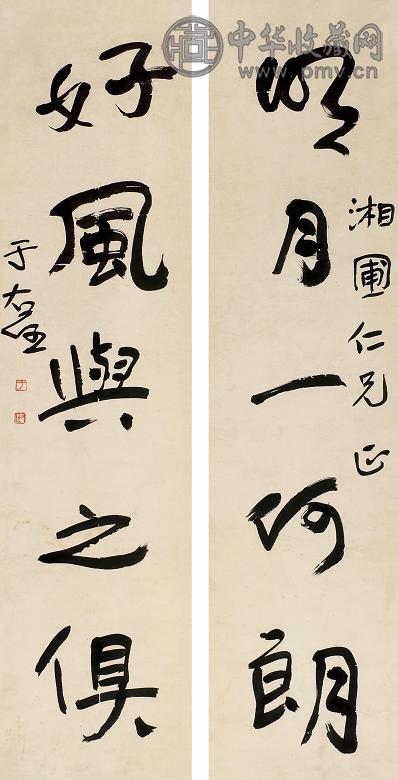 中华收藏网
www.pmv.cn
湘圃仁兄正
明月一何朗
好風與之俱
于右任